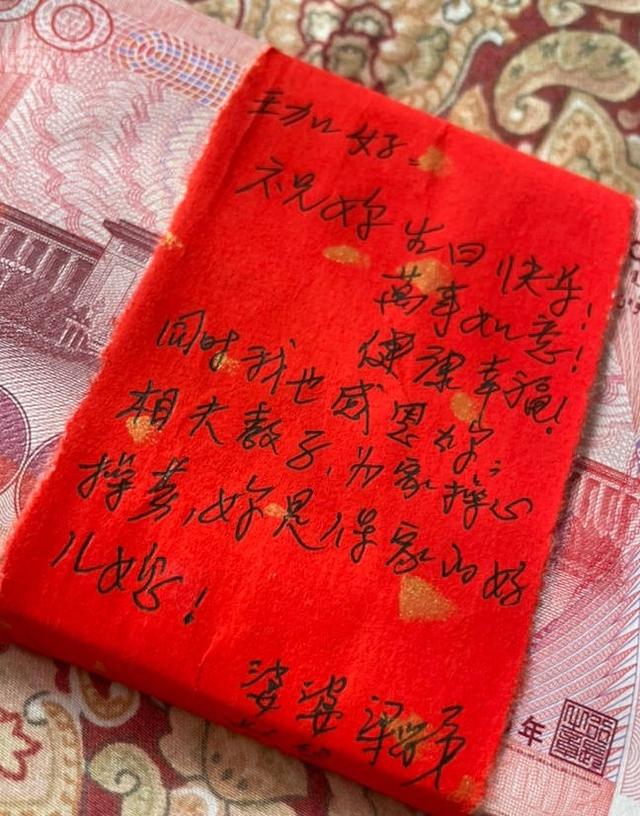 好。
祝妳生日快乐!
萬事如意!
健康幸福!
同时我也感恩妳,
相夫教子,为家操心
操劳,妳是保家的好
儿媳!
婆婆梁
年